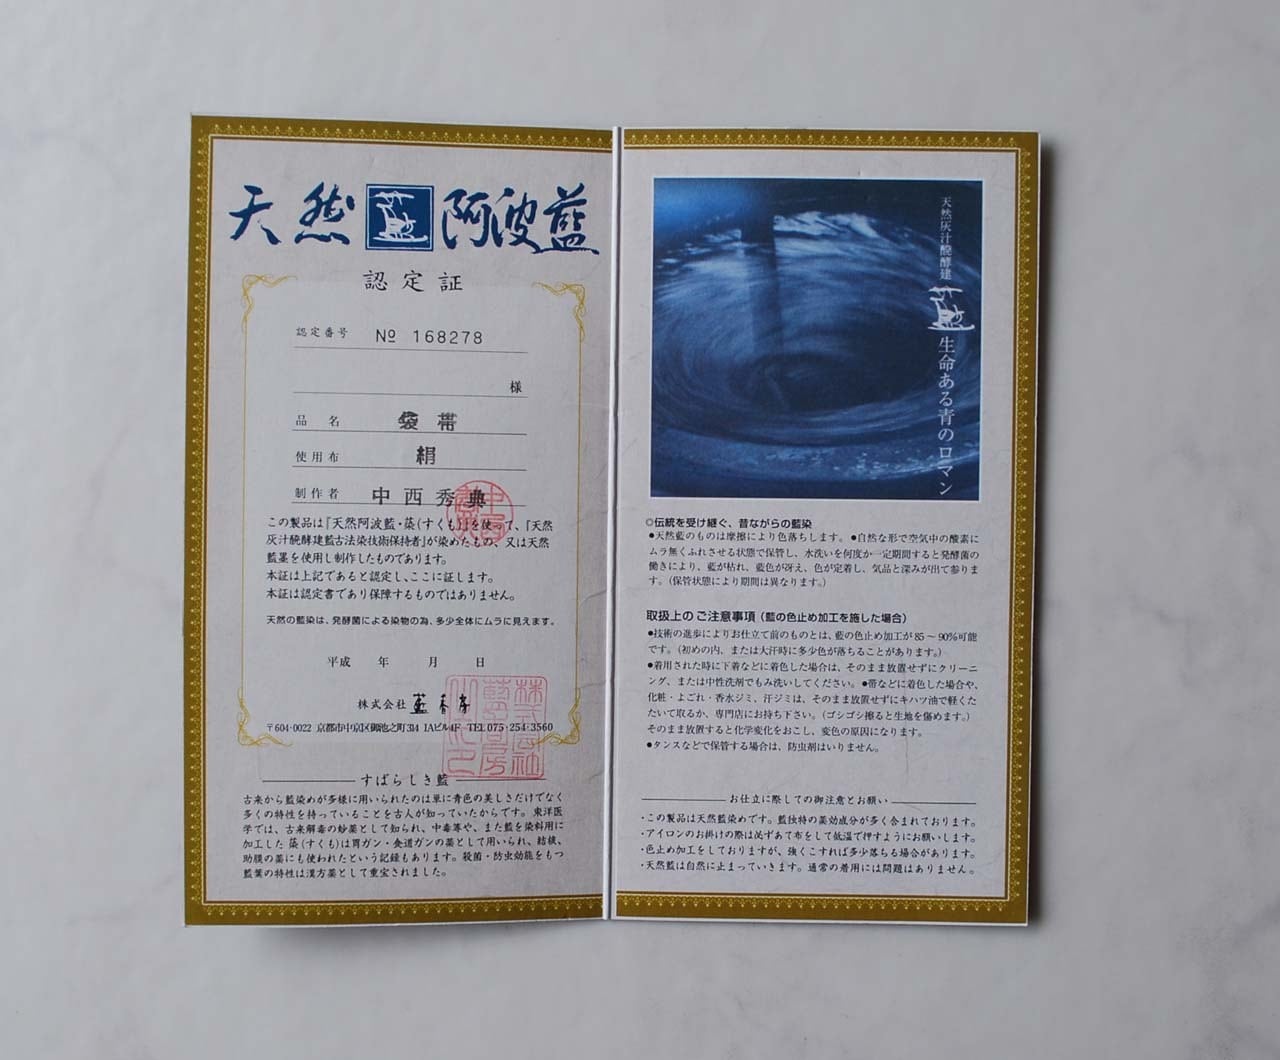 天然 阿波藍
認定証
認定番号 № 168278
様
品名 袋帯
使用布 絹
制作者 中西秀典
この製品は『天然阿波藍・蒅(すくも)』を使って、『天然
灰汁醗酵建藍古法染技術保持者』が染めたもの、又は天然
藍墨を使用し制作したものであります。
本証は上記であると認定し、ここに証します。
本証は認定書であり保障するものではありません。
天然の藍染は、発酵菌による染物の為、多少全体にムラに見えます。
平成 年 月 日
株式会社 藍香房
〒604-0022 京都市中京区御池之町314 IAビル4F TEL 075-254-3560
すばらしき藍
古来から藍染めが多様に用いられたのは単に青色の美しさだけでなく
多くの特性を持っていることを古人が知っていたからです。東洋医
学では、古来解毒の妙薬として知られ、中毒等や、また藍を染料用に
加工した蒅(すくも)は胃ガン・食道ガンの薬として用いられ、結核、
助膜の薬にも使われたという記録もあります。殺菌・防虫効能をもつ
藍葉の特性は漢方薬として重宝されました。
天然灰汁醗酵建
藍
生命ある青のロマン
◎伝統を受け継ぐ、昔ながらの藍染
●天然藍のものは摩擦により色落ちします。●自然な形で空気中の酸素に
ムラ無くふれさせる状態で保管し、水洗いを何度か一定期間すると発酵菌の
働きにより、藍が枯れ、藍色が冴え、色が定着し、気品と深みが出て参りま
す。(保管状態により期間は異なります。)
取扱上のご注意事項(藍の色止め加工を施した場合)
●技術の進歩によりお仕立て前のものとは、藍の色止め加工が85~90%可能
です。(初めの内、または大汗時に多少色が落ちることがあります。)
●着用された時に下着などに着色した場合は、そのまま放置せずにクリーニ
ング、または中性洗剤でもみ洗いしてください。●帯などに着色した場合や、
化粧・よごれ・香水ジミ、汗ジミは、そのまま放置せずにキハツ油で軽くた
たいて取るか、専門店にお持ち下さい。(ゴシゴシ擦ると生地を傷めます。)
そのまま放置すると化学変化をおこし、変色の原因になります。
●タンスなどで保管する場合は、防虫剤はいりません。
お仕立に際しての御注意とお願い
・この製品は天然藍染めです。藍独特の薬効成分が多く含まれております。
・アイロンのお掛けの際は必ずあて布をして低温で押すようにお願いします。
・色止め加工をしておりますが、強くこすれば多少落ちる場合があります。
・天然藍は自然に止まっていきます。通常の着用には問題はありません。